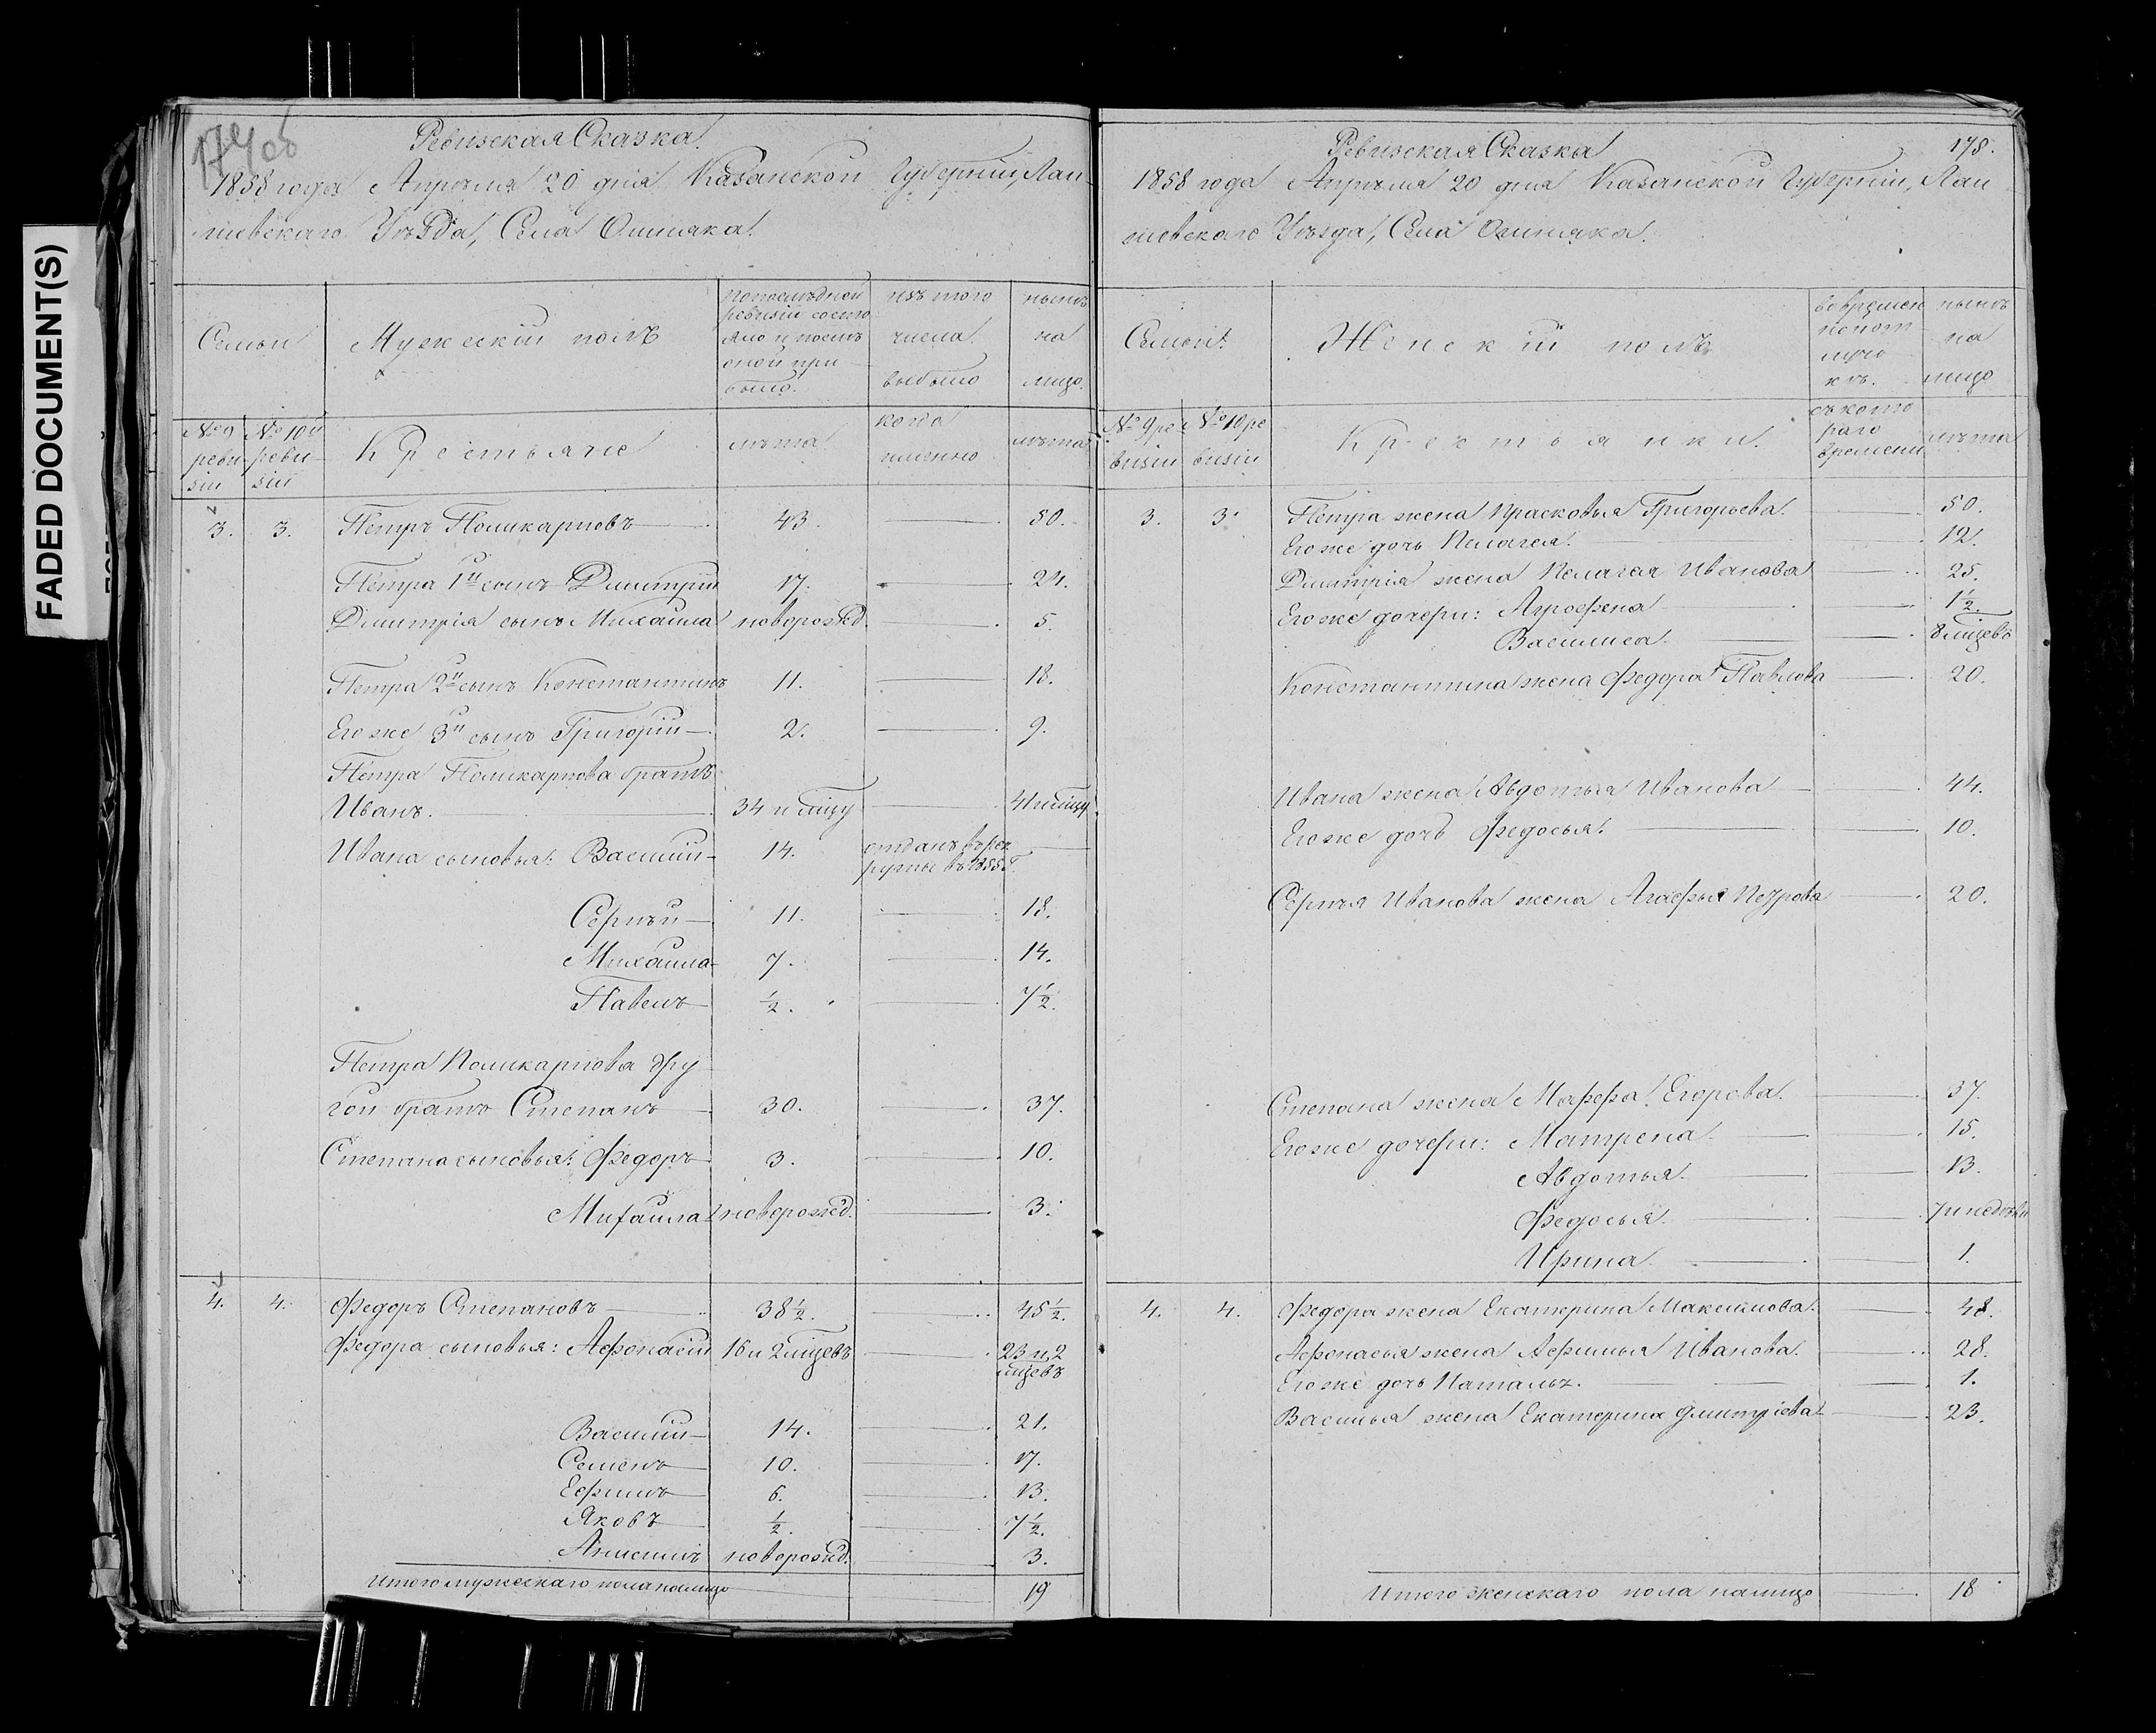 FADED DOCUMENT(S)
Ревизская Сказка
1858 года Апрѣля 20 дня Казанской Губерніи, Лаи-
шевскаго Уѣзда, Села Ошняка.
Семьи
Мужескій полъ
попослѣдной
ревизіи состо
яло и послѣ
оной при
было.
изъ того
числа
выбыло
нынѣ
на
лицо.
№ 9
реви-
зіи
№ 10й
реви-
зіи
Крестьяне
лѣта
когда
именно
лѣта
3. 3. Петръ Поликарповъ 43. 50.
Петра 1й сынъ Дмитрій 17. 24.
Дмитрія сынъ Михаила новорожд. 5.
Петра 2й сынъ Константинъ 11. 18.
Егоже 3й сынъ Григорій 2. 9.
Петра Поликарпова братъ
Иванъ. 34 и
Ивана сыновья: Василій 14. отданъ врек
руты въ 1855 г.
Сергѣй 11. 18.
Михаила 7. 14.
Павелъ ½. 7½.
Петра Поликарпова дру
гой братъ Степанъ 30. 37.
Степана сыновья: Федоръ 3. 10.
Михаила новорожд. 3.
4. 4. Федоръ Степановъ 38½. 45½.
Федора сыновья: Афонасій 16 и 2 мцевъ 23 и 2
мцевъ
Василій 14. 21.
Семенъ 10. 17.
Ефимъ 6. 13.
Яковъ ½. 7½.
Анисимъ новорожд. 3.
Итого мужескаго пола налицо 19
Ревизская Сказка 178.
1858 года Апрѣля 20 дня Казанской Губерніи, Лаи
шевскаго Уѣзда, Села Ошняка.
Семьи.
Женскій полъ
вовремен
ной от
луч
кѣ.
нынѣ
на
лицо
№ 9 ре
визіи
№ 10 ре
визіи
Крестьянки.
съ кото
раго
времени
лѣта
3. 3. Петра жена Прасковья Григорьева. 50.
Егоже дочь Пелагея. 12.
Дмитрія жена Пелагея Иванова 25.
Егоже дочери: Агрофена 1½.
Василиса. 8 мцевъ
Константина жена Федора Павлова 20.
Ивана жена Авдотья Иванова 44.
Егоже дочь Федосья. 10.
Сергѣя Иванова жена Агафья Петрова 20.
Степана жена Марфа Егорова. 37.
Егоже дочери: Матрена 15.
Авдотья. 13.
Федосья. 7 и недѣли
Ирина 1.
4. 4. Федора жена Екатерина Максимова. 48.
Афонасья жена Афимья Иванова. 28.
Егоже дочь Наталья. 1.
Василья жена Екатерина Дмитріева 23.
Итого женскаго пола налицо 18